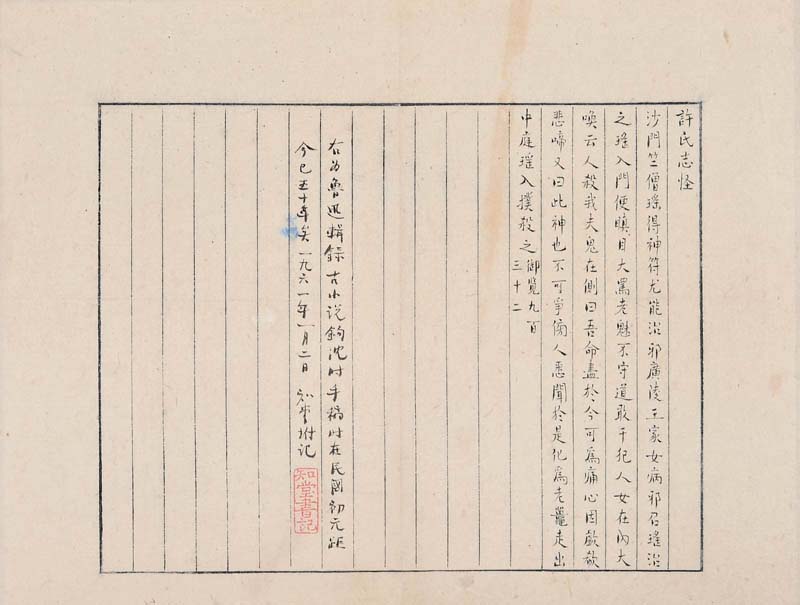 許氏志怪
沙門竺僧瑤得神符尤能治邪廣陵王家女病邪召瑤治
之瑤入門便瞋目大罵老魅不守道敢干犯人女在內大
喚云人殺我夫鬼在側曰吾命盡於今可為痛心因歔欷
悲啼又曰此神也不可爭傍人悉聞於是化為老鼉走出
中庭瑤入撲殺之御覽九百
三十二
右為魯迅輯錄古小说鉤沈时手稿时在民國初元距
今已五十年矣一九六一年一月二日 知堂附记
知堂書記